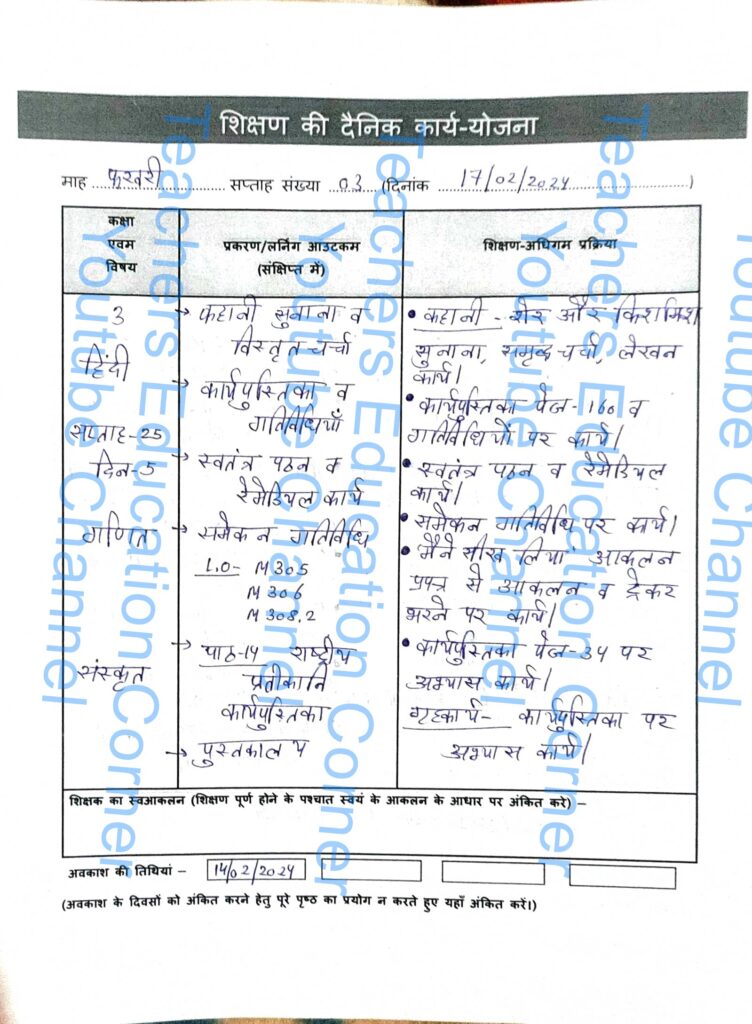 शिक्षण की दैनिक कार्य-योजना
माह फरवरी सप्ताह संख्या 03 (दिनांक 17/02/2024)
कक्षा एवम विषय
प्रकरण/लर्निंग आउटकम (संक्षिप्त में)
शिक्षण-अधिगम प्रक्रिया
3
हिंदी
सप्ताह-25
दिन-5
गणित
संस्कृत
→ कहानी सुनाना व
विस्तृत चर्चा
→ कार्यपुस्तिका व
गतिविधियाँ
→ स्वतंत्र पठन व
रेमेडियल कार्य
→ समेकन गतिविधि
L.O- M 305
M 306
M 308.2
→ पाठ-14 राष्ट्रीय
प्रतीकानि
कार्यपुस्तिका
→ पुस्तकालय
• कहानी - शेर और किशमिश
सुनाना, समृद्ध चर्चा, लेखन
कार्य।
• कार्यपुस्तिका पेज-160 व
गतिविधियों पर कार्य।
• स्वतंत्र पठन व रेमेडियल
कार्य।
• समेकन गतिविधि पर कार्य।
• मैंने सीख लिया आकलन
प्रपत्र से आकलन व ट्रेकर
भरने पर कार्य।
• कार्यपुस्तिका पेज-34 पर
अभ्यास कार्य।
गृहकार्य- कार्यपुस्तिका पर
अभ्यास कार्य।
शिक्षक का स्वआकलन (शिक्षण पूर्ण होने के पश्चात स्वयं के आकलन के आधार पर अंकित करे) –
अवकाश की तिथियां – 14/02/2024
(अवकाश के दिवसों को अंकित करने हेतु पूरे पृष्ठ का प्रयोग न करते हुए यहाँ अंकित करें।)
Teachers Education Corner
Youtube Channel
Teachers Education Corner
Youtube Channel
Teachers Education Corner
Youtube Channel